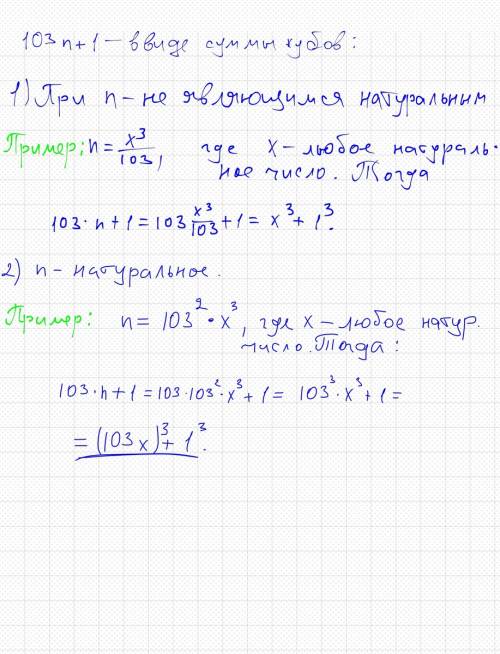 103n+1 – в виде суммы кубов:
1) При n – не являющимся натуральным
Пример: n = x³/103, где x – любое натураль-
ное число. Тогда
103·n+1 = 103 x³/103 + 1 = x³ + 1³.
2) n – натуральное.
Пример: n = 103²·x³, где x – любое натур.
число. Тогда:
103·n+1 = 103·103²·x³+1 = 103³·x³+1 =
= (103x)³ + 1³.